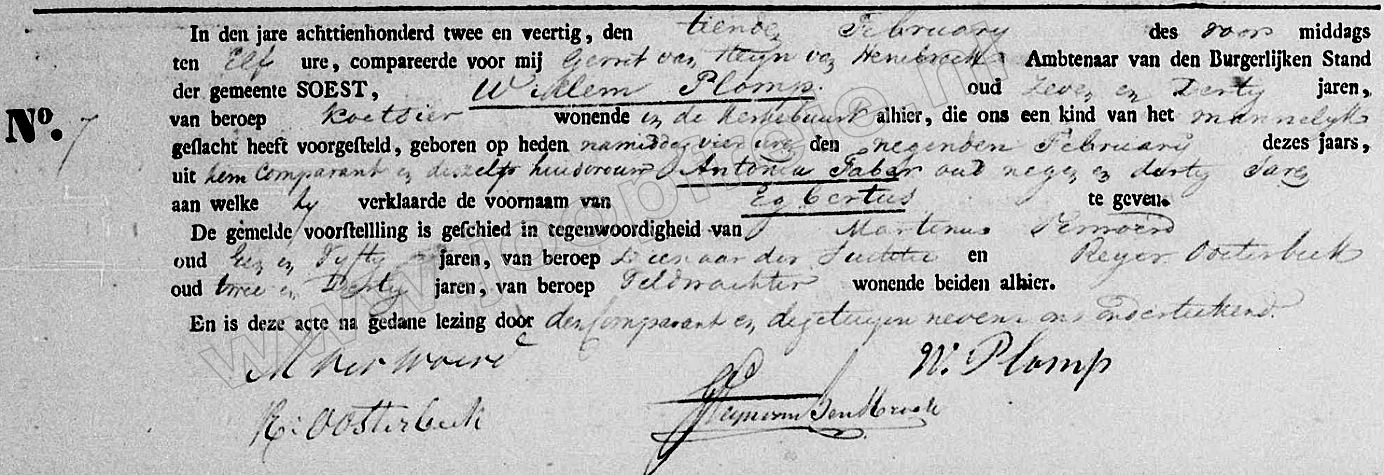 In den jare achttienhonderd twee en veertig, den tienden February des voor middags
ten Elf ure, compareerde voor mij Gerrit van Steyn van Hensbroek Ambtenaar van den Burgerlijken Stand
der gemeente SOEST, Willem Plomp oud Zeven en Dertig jaren,
No. 7
van beroep Koetsier wonende in de Kerkebuurt alhier, die ons een kind van het mannelyk
geslacht heeft voorgesteld, geboren op heden namiddag vier ure den negenden February dezes jaars,
uit hem Comparant en deszelfs huisvrouw Antonia Faber oud negen en dertig Jaren
aan welke hy verklaarde de voornaam van Egbertus te geven.
De gemelde voorstellling is geschied in tegenwoordigheid van Martinus Verwoerd
oud en Vyftig jaren, van beroep Dienaar der Justitie en Reyer Oosterbeek
oud twee en Dertig jaren, van beroep Veldwachter wonende beiden alhier.
En is deze acte na gedane lezing door den Comparant en de getuigen nevens ons onderteekend.
M Verwoerd
W. Plomp
R. Oosterbeek
www.joopreje.nl